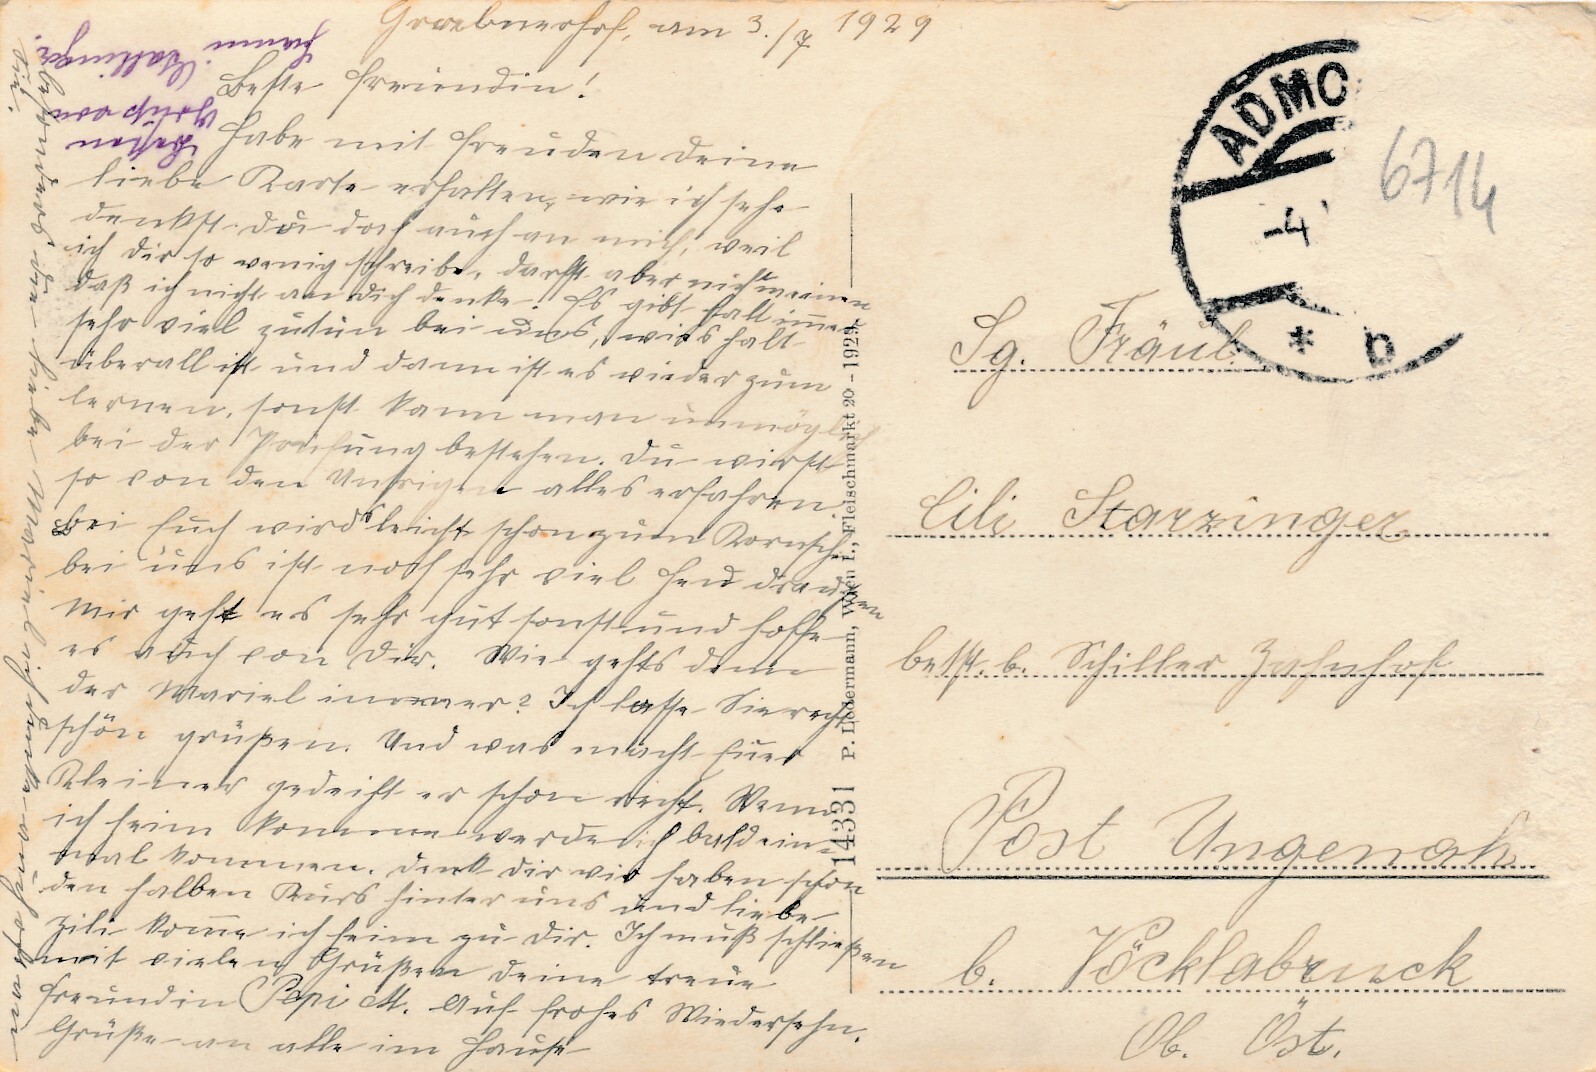 Grabnerhof, am 3./7. 1929
Beste Freundin!
Habe mit Freuden Deine
liebe Karte erhalten, wie ich sehe
denkst Du doch auch an mich, weil
ich dir so wenig schreibe, darfst aber nicht meinen
daß ich nicht an Dich denke. Es gibt halt immer
sehr viel zutun bei uns, wies halt
überall ist und dann ist es wieder zum
lernen, sonst kann man unmöglich
bei der Prüfung bestehen. Du wirst
so von den Unsrigen alles erfahren.
Bei Euch wirds leicht schon zum Kornsch.
bei uns ist noch sehr viel Heu draußen
Mir geht es sehr gut sonst und hoffe
es auch von Dir. Wie gehts denn
der Mariel immer? Ich lasse Sie recht
schön grüßen. Und was macht Euer
Kleiner gedeiht er schon recht. Wenn
ich heim komme werde ich bald ein-
mal kommen. Denk dir wir haben schon
den halben Kurs hinter uns und liebe
Zili komme ich heim zu Dir. Ich muß schließen
mit vielen Grüßen deine treue
Freundin Pepi M. Auf frohes Wiedersehn.
Grüße an alle im Hause
besonders die liebe Mariel
Besten
Gruß von
Hanni
14331 P. Ledermann, Wien I., Fleischmarkt 20 - 1925
ADMO
-4
* b
6714
Sg. Fräul.
Cili Starzinger
b. Schiller Zahnhof
Post Ungenach
b. Vöcklabruck
Ob. Öst.